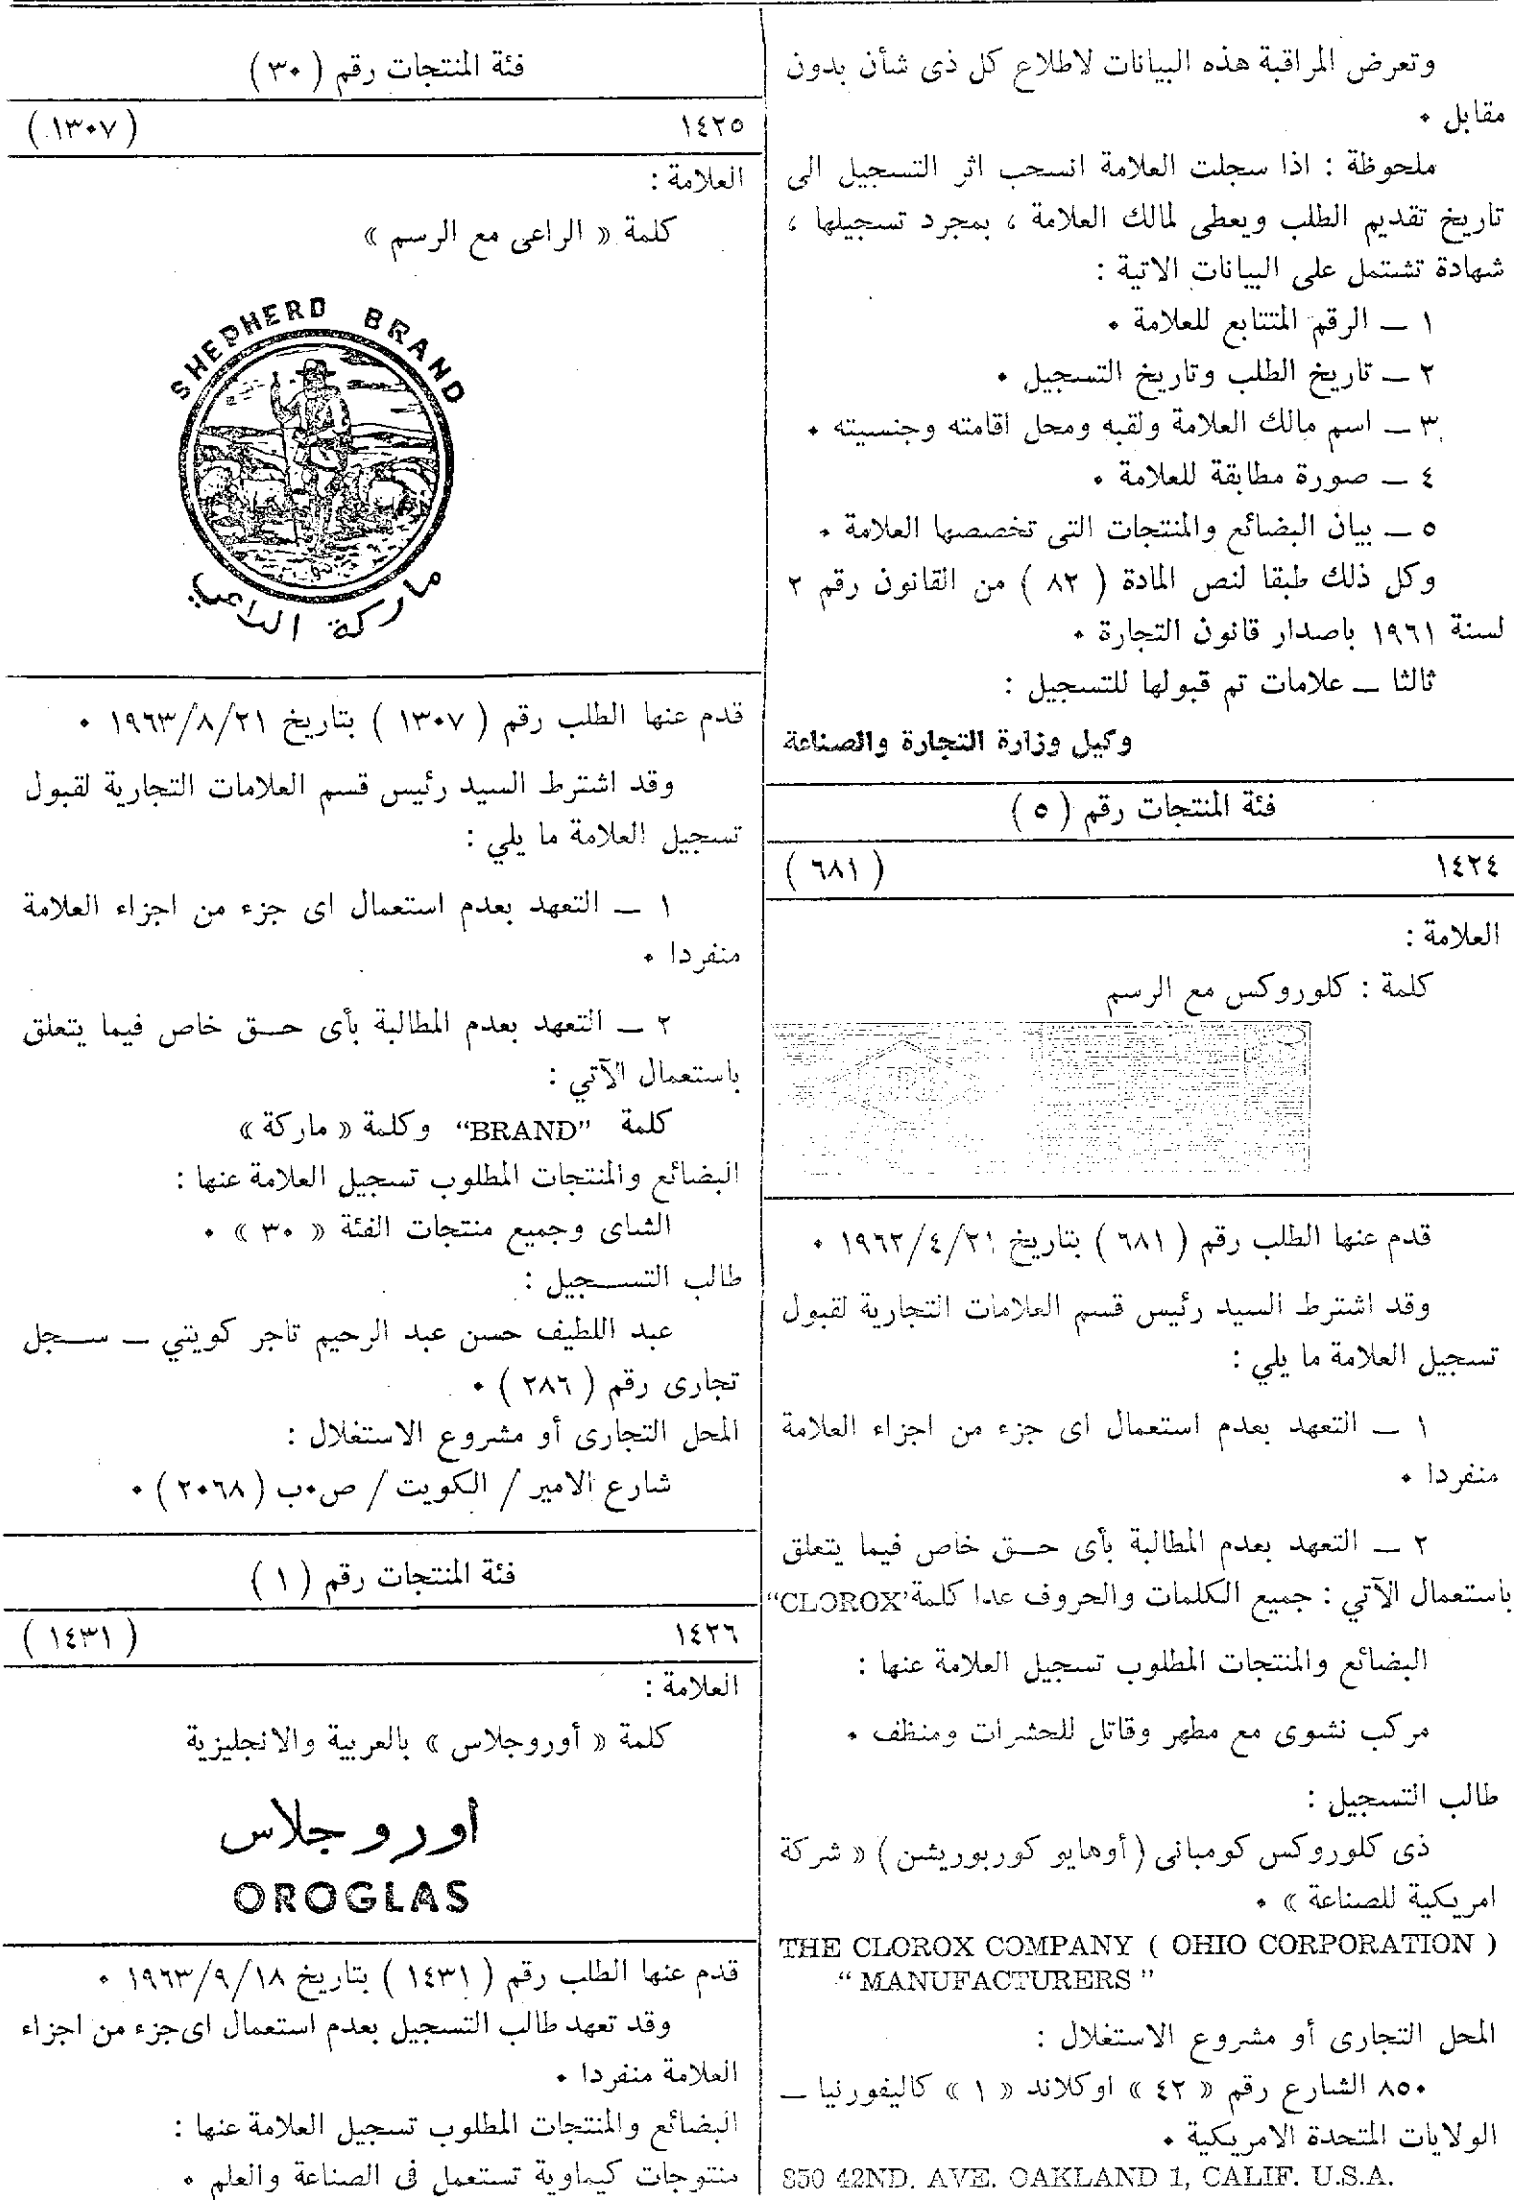 وتعرض المراقبة هذه البيانات لاطلاع كل ذى شأن بدون
مقابل ٠
ملحوظة : اذا سجلت العلامة انسحب اثر التسجيل الى
تاريخ تقديم الطلب ويعطى لمالك العلامة ، بمجرد تسجيلها ،
شهادة تشتمل على البيانات الاتية :
١ ــ الرقم المتتابع للعلامة ٠
٢ ــ تاريخ الطلب وتاريخ التسجيل ٠
٣ ــ اسم مالك العلامة ولقبه ومحل اقامته وجنسيته ٠
٤ ــ صورة مطابقة للعلامة ٠
٥ ــ بيان البضائع والمنتجات التى تخصصها العلامة ٠
وكل ذلك طبقا لنص المادة ( ٨٢ ) من القانون رقم ٢
لسنة ١٩٦١ باصدار قانون التجارة ٠
ثالثا ــ علامات تم قبولها للتسجيل :
وكيل وزارة التجارة والصناعة
فئة المنتجات رقم ( ٥ )
١٤٢٤ ( ٦٨١ )
العلامة :
كلمة : كلوروكس مع الرسم
قدم عنها الطلب رقم ( ٦٨١ ) بتاريخ ١٩٦٢/٤/٢١ ٠
وقد اشترط السيد رئيس قسم العلامات التجارية لقبول
تسجيل العلامة ما يلي :
١ ــ التعهد بعدم استعمال اى جزء من اجزاء العلامة
منفردا ٠
٢ ــ التعهد بعدم المطالبة بأى حــق خاص فيما يتعلق
باستعمال الآتي : جميع الكلمات والحروف عدا كلمة "CLOROX'
البضائع والمنتجات المطلوب تسجيل العلامة عنها :
مركب نشوى مع مطهر وقاتل للحشرات ومنظف ٠
طالب التسجيل :
ذى كلوروكس كومبانى ( أوهايو كوربوريشن ) « شركة
امريكية للصناعة » ٠
THE CLOROX COMPANY ( OHIO CORPORATION )
" MANUFACTURERS "
المحل التجارى أو مشروع الاستغلال :
٨٥٠ الشارع رقم « ٤٢ » اوكلاند « ١ » كاليفورنيا ــ
الولايات المتحدة الامريكية ٠
850 42ND. AVE. OAKLAND 1, CALIF. U.S.A.
فئة المنتجات رقم ( ٣٠ )
١٤٢٥ ( ١٣٠٧ )
العلامة :
كلمة « الراعى مع الرسم »
SHEPHERD BRAND
ماركة الراعي
قدم عنها الطلب رقم ( ١٣٠٧ ) بتاريخ ١٩٦٣/٨/٢١ ٠
وقد اشترط السيد رئيس قسم العلامات التجارية لقبول
تسجيل العلامة ما يلي :
١ ــ التعهد بعدم استعمال اى جزء من اجزاء العلامة
منفردا ٠
٢ ــ التعهد بعدم المطالبة بأى حــق خاص فيما يتعلق
باستعمال الآتي :
كلمة "BRAND" وكلمة « ماركة »
البضائع والمنتجات المطلوب تسجيل العلامة عنها :
الشاى وجميع منتجات الفئة « ٣٠ » ٠
طالب التســـجيل :
عبد اللطيف حسن عبد الرحيم تاجر كويتي ــ ســجل
تجارى رقم ( ٢٨٦ ) ٠
المحل التجارى أو مشروع الاستغلال :
شارع الامير / الكويت / ص٠ب ( ٢٠٦٨ ) ٠
فئة المنتجات رقم ( ١ )
١٤٢٦ ( ١٤٣١ )
العلامة :
كلمة « أوروجلاس » بالعربية والانجليزية
اوروجلاس
OROGLAS
قدم عنها الطلب رقم ( ١٤٣١ ) بتاريخ ١٩٦٣/٩/١٨ ٠
وقد تعهد طالب التسجيل بعدم استعمال اى جزء من اجزاء
العلامة منفردا ٠
البضائع والمنتجات المطلوب تسجيل العلامة عنها :
منتوجات كيماوية تستعمل فى الصناعة والعلم ٠